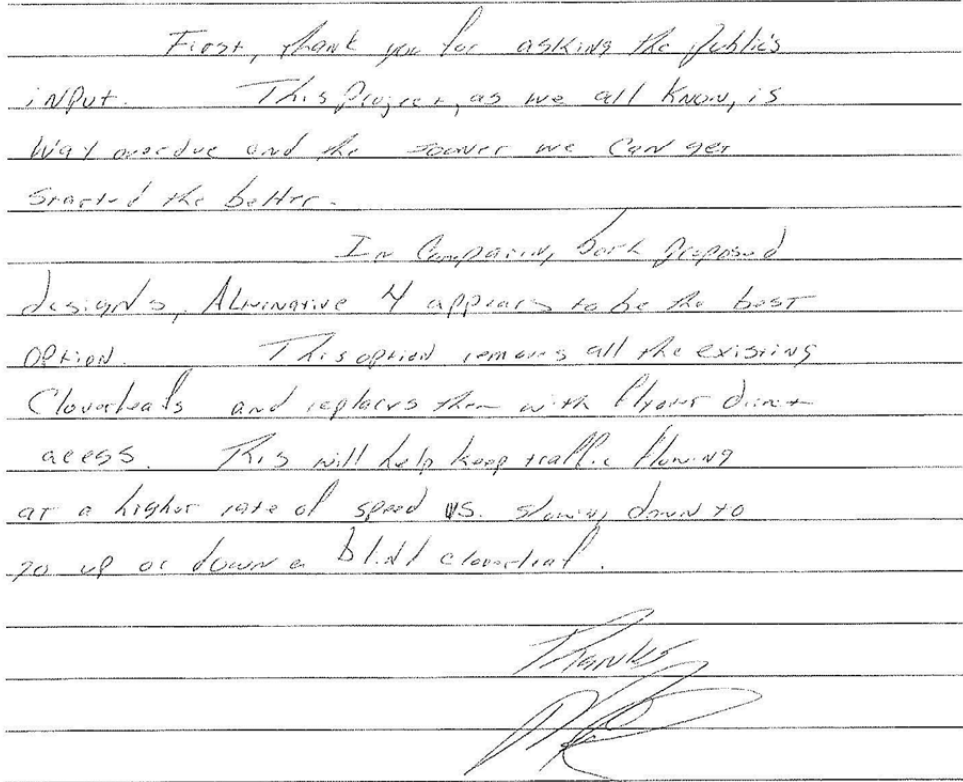 First, thank you for asking the public's
input. This project, as we all know, is
way overdue and the sooner we can get
started the better.
In comparing both proposed
designs, Alternative 4 appears to be the best
option. This option removes all the existing
Cloverleafs and replaces them with flyover direct
acess. This will help keep traffic flowing
at a higher rate of speed vs. slowing down to
go up or down a blind cloverleaf.
Thanks